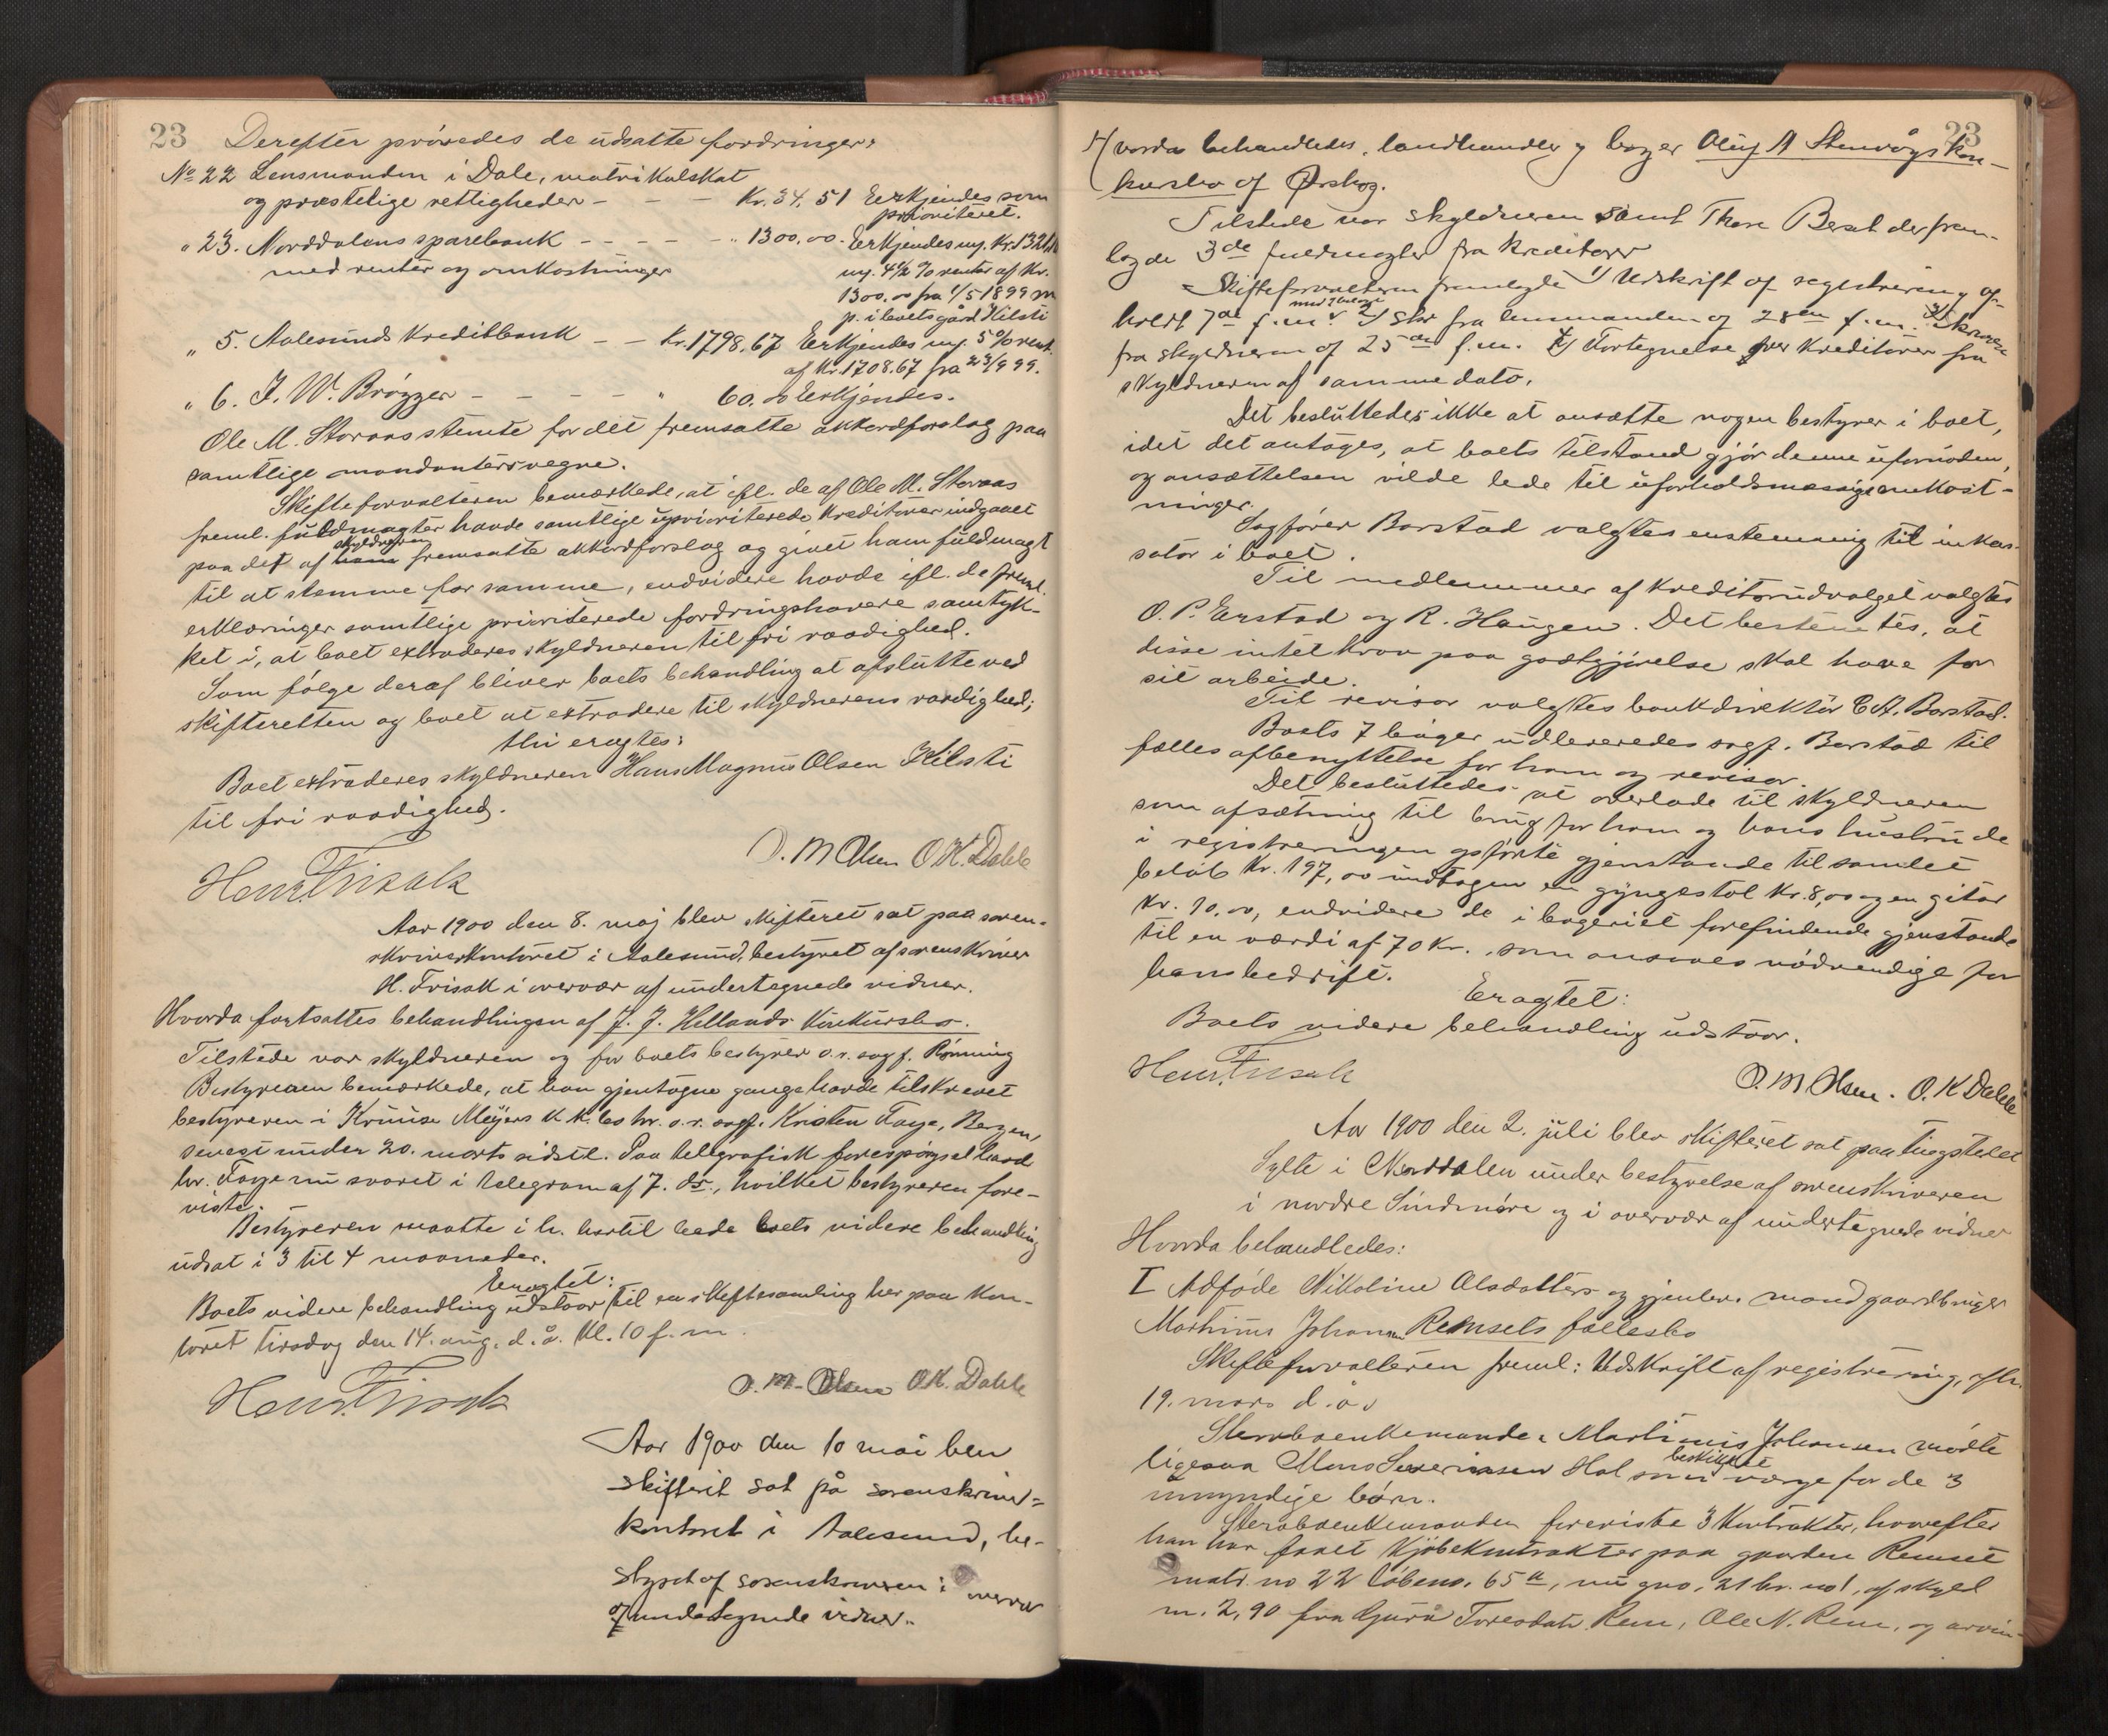 23 Derefter prøvedes de udsatte fordringer:
No 22 Lensmanden i Dale, matrikulskat
og præstelige rettigheder - - - Kr. 34,51 Erkjendes som
prioriteret.
" 23. Norddalens sparebank - - - - - " 1300,00. Erkjendes m.
med renter og omkostninger m. 4½ % renter af Kr.
1300,00 fra 1/5 1899 m
p. i boets gård Kilsti
" 5. Aalesunds Kreditbank - - Kr. 1798,67 Erkjendes m. 5% rent.
af Kr. 1708.67 fra 23/9 99.
" 6. I. W. Brøgger - - - - " 60.00 Erkjendes.
Ole M. Storaas stemte for det fremsatte akkordforslag paa
samtlige mandanters vegne.
Skifteforvalteren bemærkede, at ifl. de af Ole M. Storaas
freml. fuldmagter havde samtlige uprioriterede kreditorer indgaaet
skyldneren
paa det af ham fremsatte akkordforslag og givet ham fuldmagt
til at stemme for samme, endvidere havde ifl. de freml.
erklæringer samtlige prioriterede fordringshavere samtyk-
ket i, at boet extraderes skyldneren til fri raadighed.
Som følge deraf bliver boets behandling at afslutte ved
skifteretten og boet at extradere til skyldnerens raadighed;
thi eragtes:
Boet extraderes skyldneren Hans Magnus Olsen Kilsti
til fri raadighed.
O. M Olsen O. K. Dahle
Henr. Frisak
Aar 1900 den 8. maj blev skifteret sat paa soren-
skriverkontoret i Aalesund, bestyret af sorenskriver
H. Frisak i overvær af undertegnede vidner.
Hvorda fortsattes behandlingen af J. J. Hellands Konkursbo.
Tilstede var skyldneren og for boets bestyrer o.r. sagf. Rønning
Bestyreren bemærkede, at han gjentagne gange havde tilskrevet
bestyreren i Kruuse Meyers k. k. bo hr. o. r. sagf. Kristen Faye, Bergen,
senest under 20. marts sidstl. Paa tellgrafisk forespørgsel havd
hr. Faye nu svaret i telegram af 7. ds., hvilket bestyreren fore-
viste.
Bestyreren maatte i h. hertil bede boets videre behandling
udsat i 3 til 4 maaneder.
Eragtet:
Boets videre behandling udstaar til en skiftesamling her paa kon-
toret tirsdag den 14. aug. d. å. kl. 10 f. m.
O. M. Olsen O. K. Dahle
Henr. Frisak
Aar 1900 den 10 mai blev
skifterit sat på sorenskriver=
kontoret i Aalesund, be-
styret af sorenskriveren i overvær
af undertegnede vidner.
23
Hvorda behandledes landhandler og bager Oluf A Stenvågs kon-
kursbo af Ørskog.
Tilstede var skyldneren samt Thore Berset der frem-
lagde 3de fuldmagter fra kreditorer
Skifteforvalteren fremlagde 1) Udskrift af registrering af-
med bilage
holdt 7de f.m. 2) Skr fra lensmanden af 28en f.m. 3) Skrivelse
fra skyldneren af 25de f.m. 4) Fortegnelse over kreditorer fra
skyldneren af samme dato.
Det besluttedes ikke at ansætte nogen bestyrer i boet,
idet det antages, at boets tilstand gjør denne ufornøden,
og ansættelsen vilde lede til uforholdsmæssige omkost-
ninger.
Sagfører Barstad valgtes enstemmig til inkas-
sator i boet.
Til medlemmer af kreditorudvalget valgtes
O. P. Erstad og R. Haugen. Det bestemtes, at
disse intet krav paa godtgjørelse skal have for
sit arbeide.
Til revisor valgtes bankdirektør C A. Barstad.
Boets 7 bøger udleveredes sagf. Barstad til
fælles afbenyttelse for ham og revisor.
Det besluttedes at overlade til skyldneren
som afsætning til brug for ham og hans hustru de
i registreringen opførte gjenstande til samlet
beløb Kr. 197,00 undtagen en gyngestol Kr. 8,00 og en gitar
Kr. 10.00, endvidere de i bageriet forefindende gjenstande
til en værdi af 70 Kr., som ansaaes nødvendige for
hans bedrift.
Eragtet:
Boets videre behandling udstaar.
Henr. Frisak
O. M Olsen. O. K Dahle
Aar 1900 den 2. juli blev skifteret sat paa tingstedet
Sylte i Norddalen under bestyrelse af sorenskriveren
i nordre Søndmøre og i overvær af undertegnede vidner
Hvorda behandledes:
I Adføde Nikoline Olsdatters og gjenlev. mand gaardbruger
Martinus Johansen Remsets fællesbo
Skifteforvalteren freml: Udskrift af registrering, afh.
19. mars d. å.
Stervboenkemanden Martinus Johansen mødte
beskikket
ligesaa Mons Severinsen Hol som værge for de 3
umyndige børn.
Stervboenkemanden foreviste 3 Kontrakter, hvorefter
han har faaet Kjøbekontrakter paa gaarden Remset
matr. no 22 løbeno. 65 a, nu gno. 21 br. no 1, af skyld
m. 2,90 fra Guru Toresdatr. Rem, Ole N. Rem, og arvin-